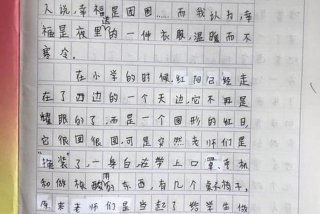 人说,幸福是团团……而我认为,幸
福是夜里送的一件衣服,温暖而不
寒冷。
在小学的时候,红阳已经走
在了四边的一个天边,它不再是
耀眼的了,而是一个圆形的红日,
它很圆很圆,可是突然老师们是
装了,一身白衣带上口罩,手机
却做核酸用的东西,有几个
原来老师们是当起了给学生做